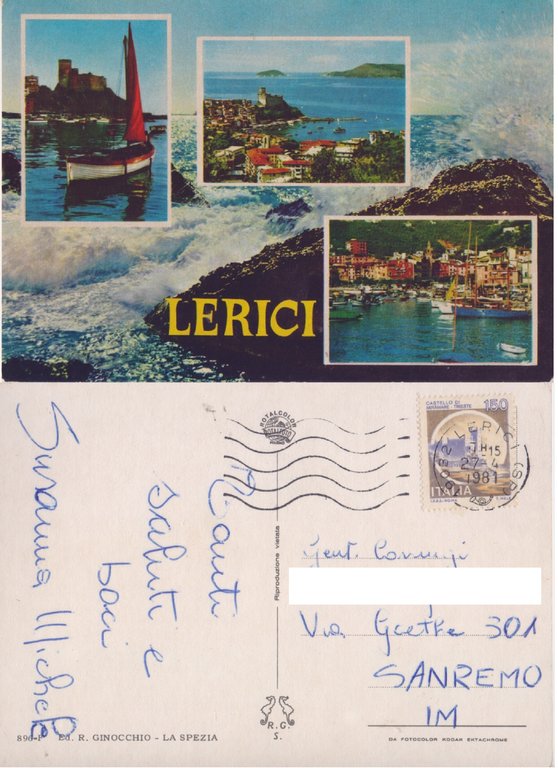 LERICI
ROTALCOLOR
CASTELLO DI
MIRAMARE - TRIESTE
150
ITALIA
LERICI (SP)
27-4
1981
Tanti
saluti e
baci
Susanna Michele
Riproduzione vietata
Gent. Coniugi
Via Goethe 301
SANREMO
IM
R. G.
S.
896-F Ed. R. GINOCCHIO - LA SPEZIA
DA FOTOCOLOR KODAK EKTACHROME